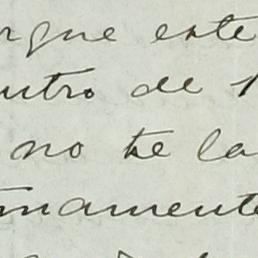 rque este
ntro de
no te la
namente